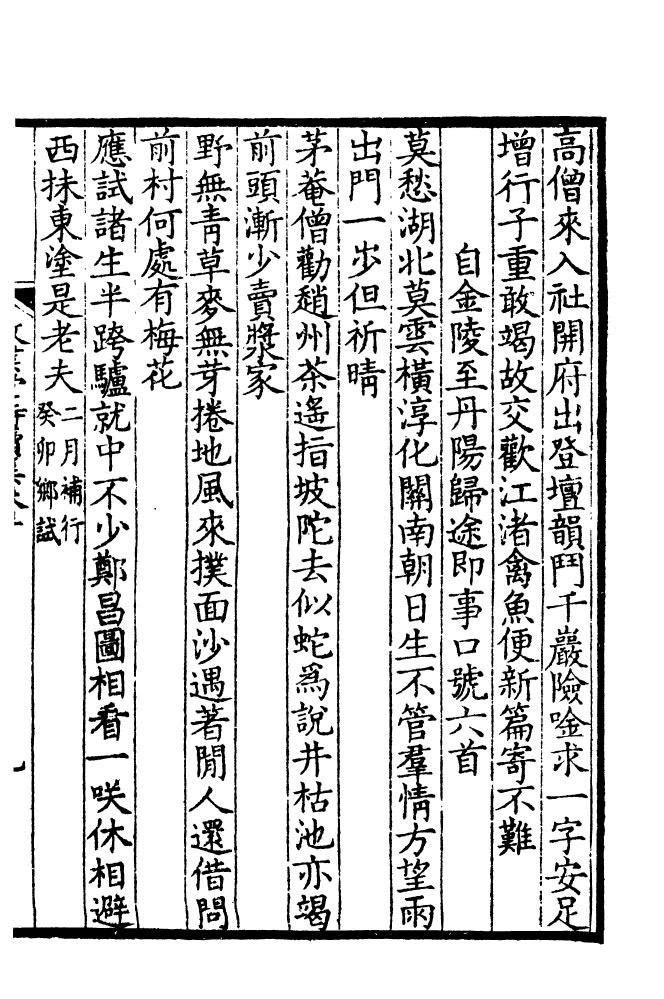 高僧來入社開府出登壇韻鬥千巖險唫求一字安足
增行子重敢竭故交歡江渚禽魚便新篇寄不難
自金陵至丹陽歸途即事口號六首
莫愁湖北莫雲橫淳化關南朝日生不管羣情方望雨
出門一步但祈晴
茅菴僧勸趙州茶遙指坡陀去似蛇爲說井枯池亦竭
前頭漸少賣漿家
野無靑草麥無芽捲地風來撲面沙遇著閒人還借問
前村何處有梅花
應試諸生半跨驢就中不少鄭昌圖相看一咲休相避
西抹東塗是老夫二月補行
癸卯鄉試
九